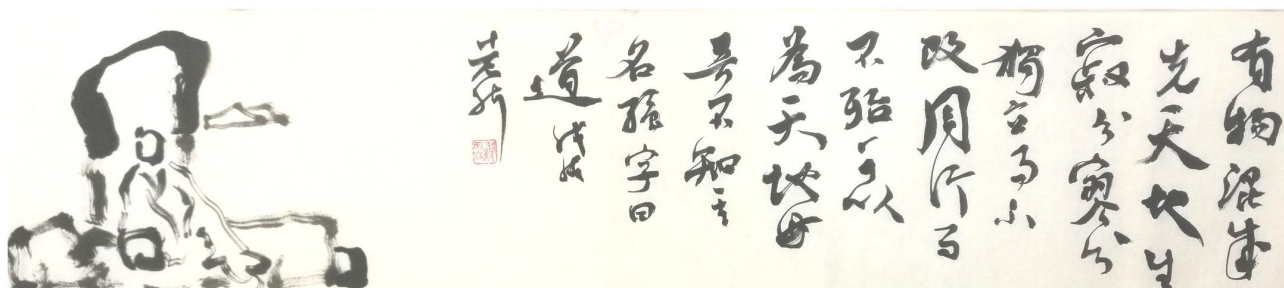 有物混成
先天地生
寂兮寥兮
獨立而不
改周行而
不殆可以
為天地母
吾不知其
名強字曰
道